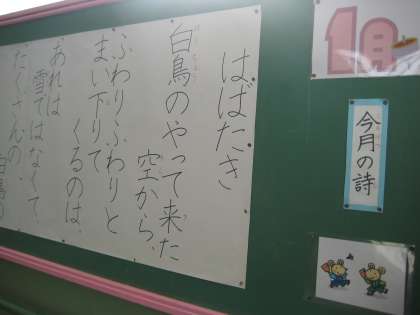 1月
今月の詩
はばたき
白鳥のやって来た
空から、
ふわりふわりと
まい下りて
くるのは、
あれは
雪ではなくて、
たくさんの、
白鳥の